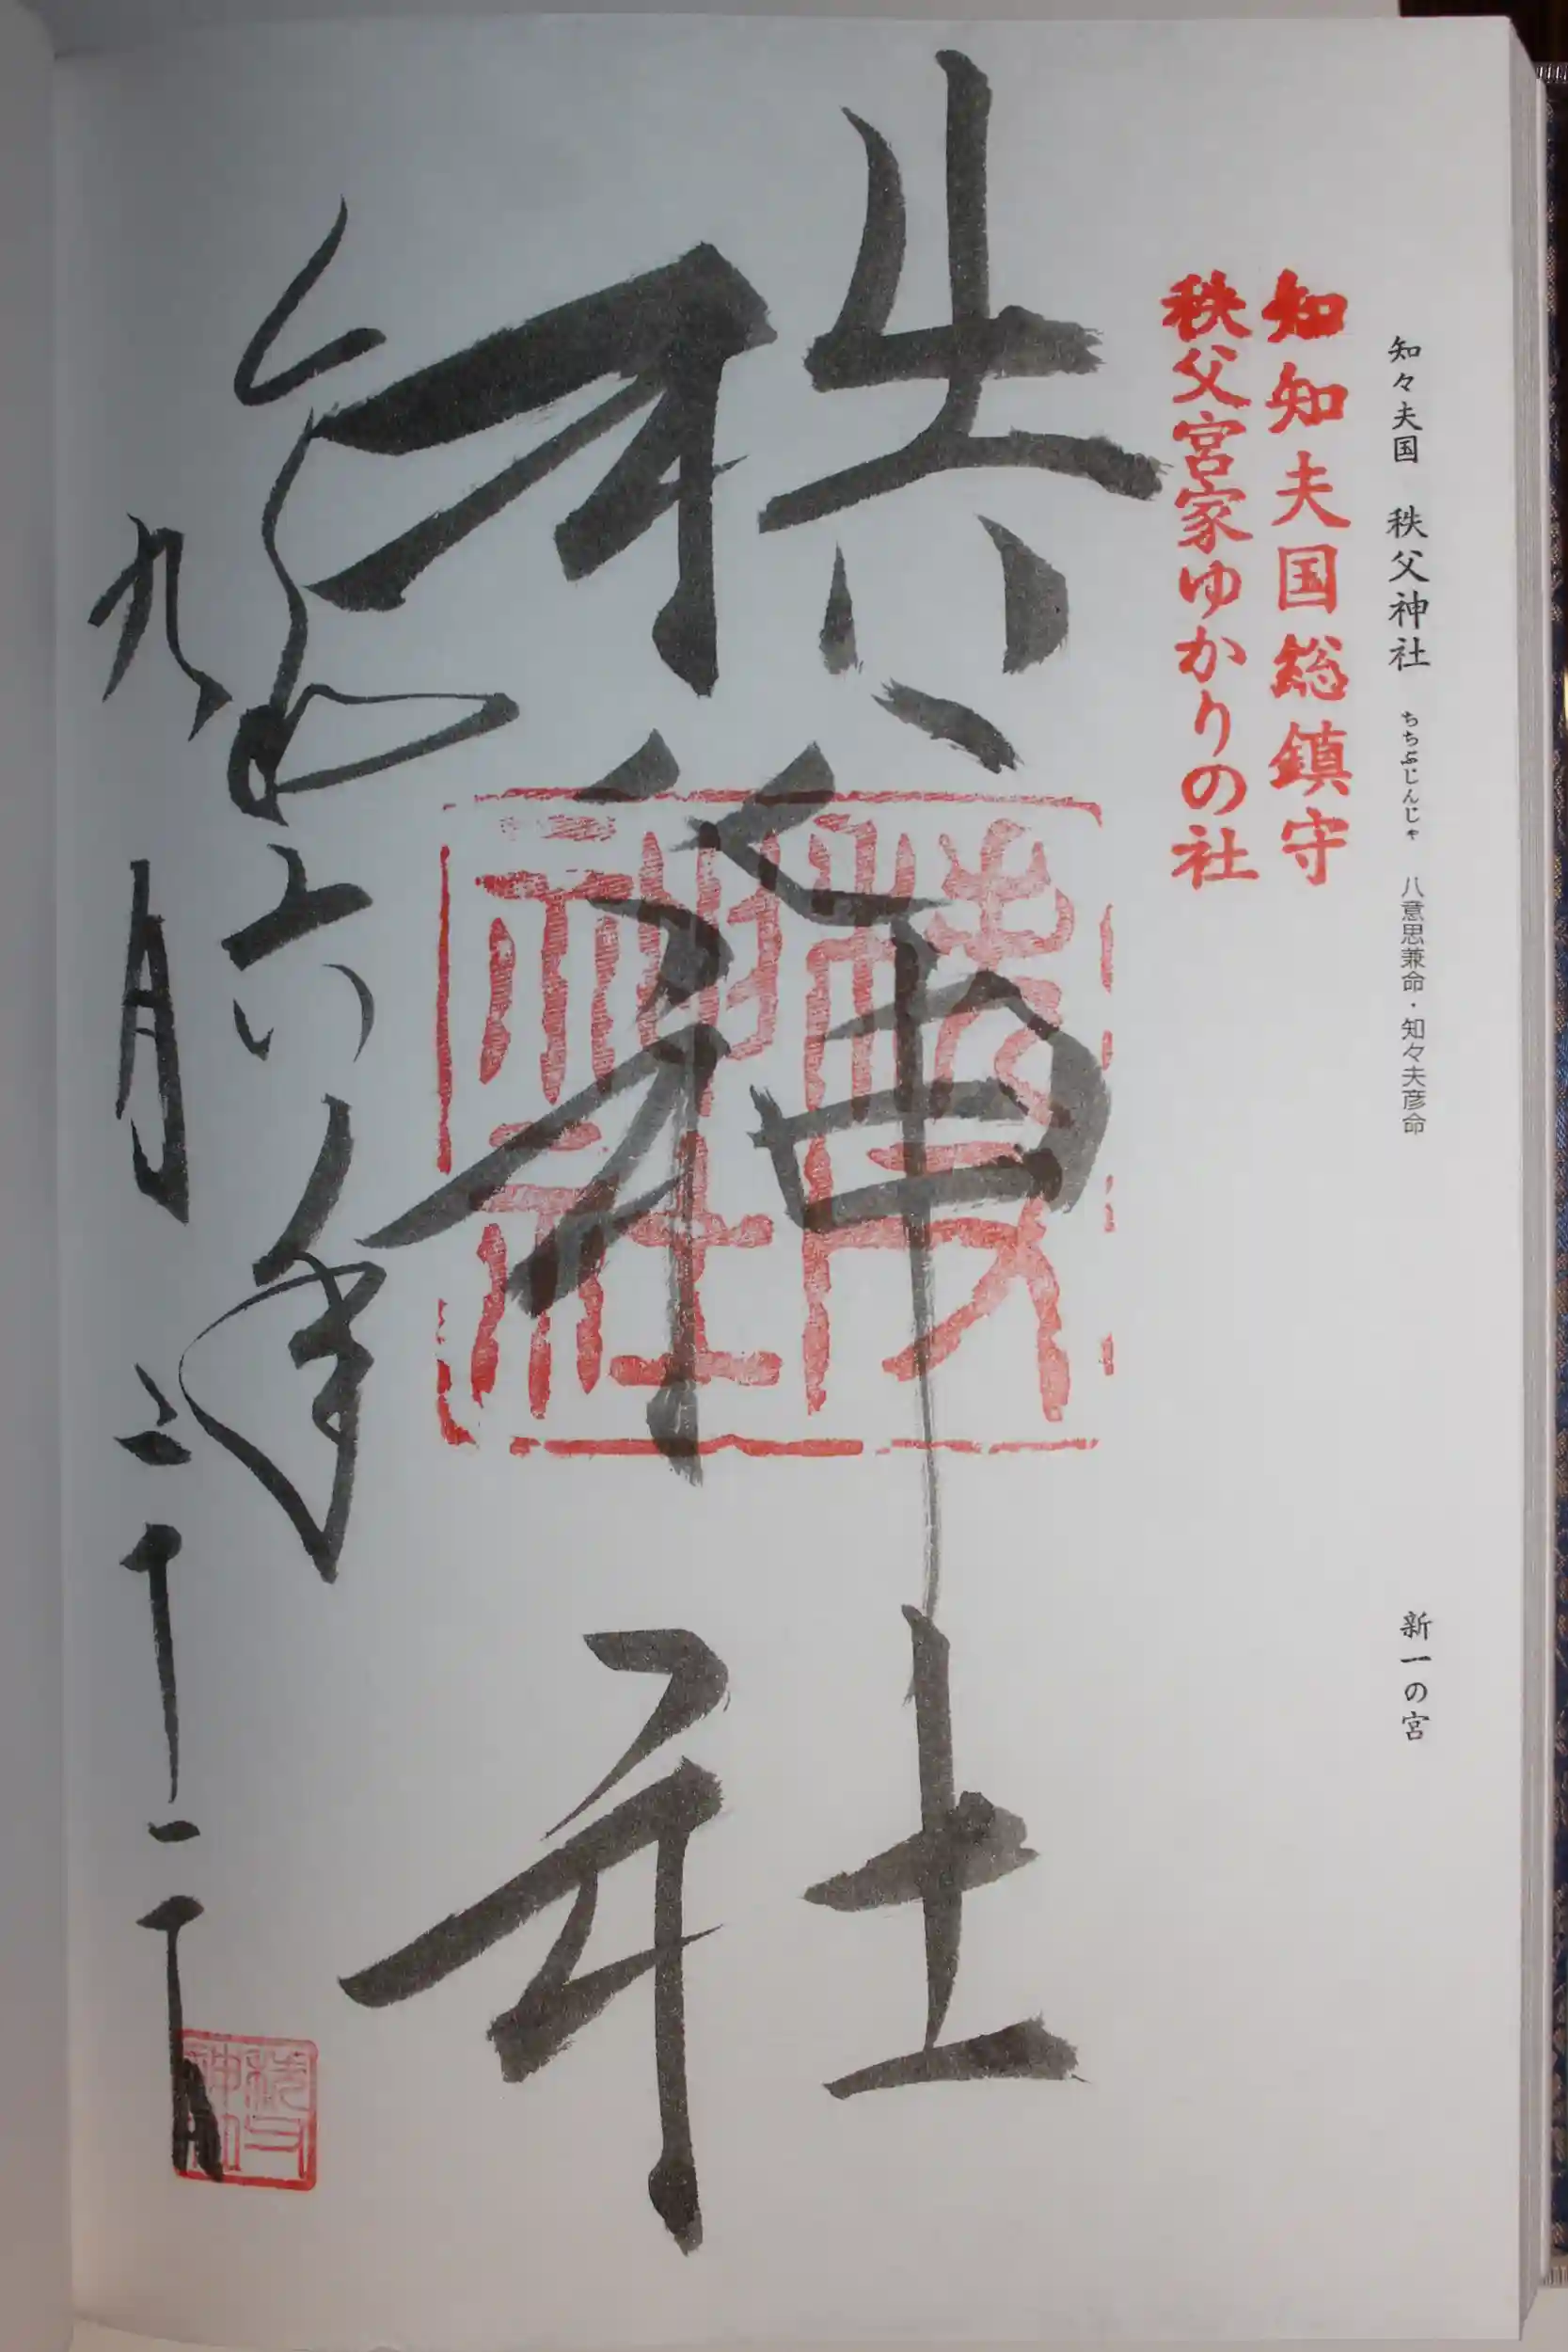 知々夫国　秩父神社　ちちぶじんじゃ　八意思兼命・知々夫彦命　新一の宮
知知夫国総鎮守
秩父宮家ゆかりの社
秩父神社
秩父神社
令和六年
九月二十一日
秩父神社